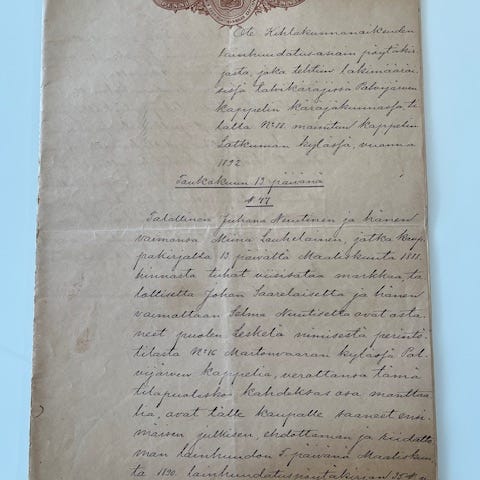 Ote Kihlakunnanoikeuden
lainhuudatusasiain pöytäkir
jasta, joka tehtiin lakimääräi
sissä talvikäräjissä Polvijärven
kappelin käräjäkunnassa ti
lalla No 18. mainitun kappelin
Sotkuman kylässä, vuonna
1892
Toukokuun 13 päivänä
§ 77
Talollinen Juhana Nuutinen ja hänen
vaimonsa Miina Laukelainen, jotka kaup
pakirjalla 13 päivältä Maaliskuuta 1881.
hinnasta tuhat viisisataa markkaa, ta
lollisetta Johan Saarelaisetta ja hänen
vaimoltaan Selma Nuutisetta ovat osta
neet puolen Leskelä nimisestä perintö
tilasta No 16 Martonvaaran kylässä Pol
vijärven kappelia, verottansa tämä
tilapuolisko kahdeksas osa manttaa
lia, ovat tälle kaupalle saaneet ensi
mäisen julkisen, ehdottoman ja
man lainhuudon 5. päivänä Maaliskuu
ta 1890. lainhuudatuspöytäkirjan 25 §